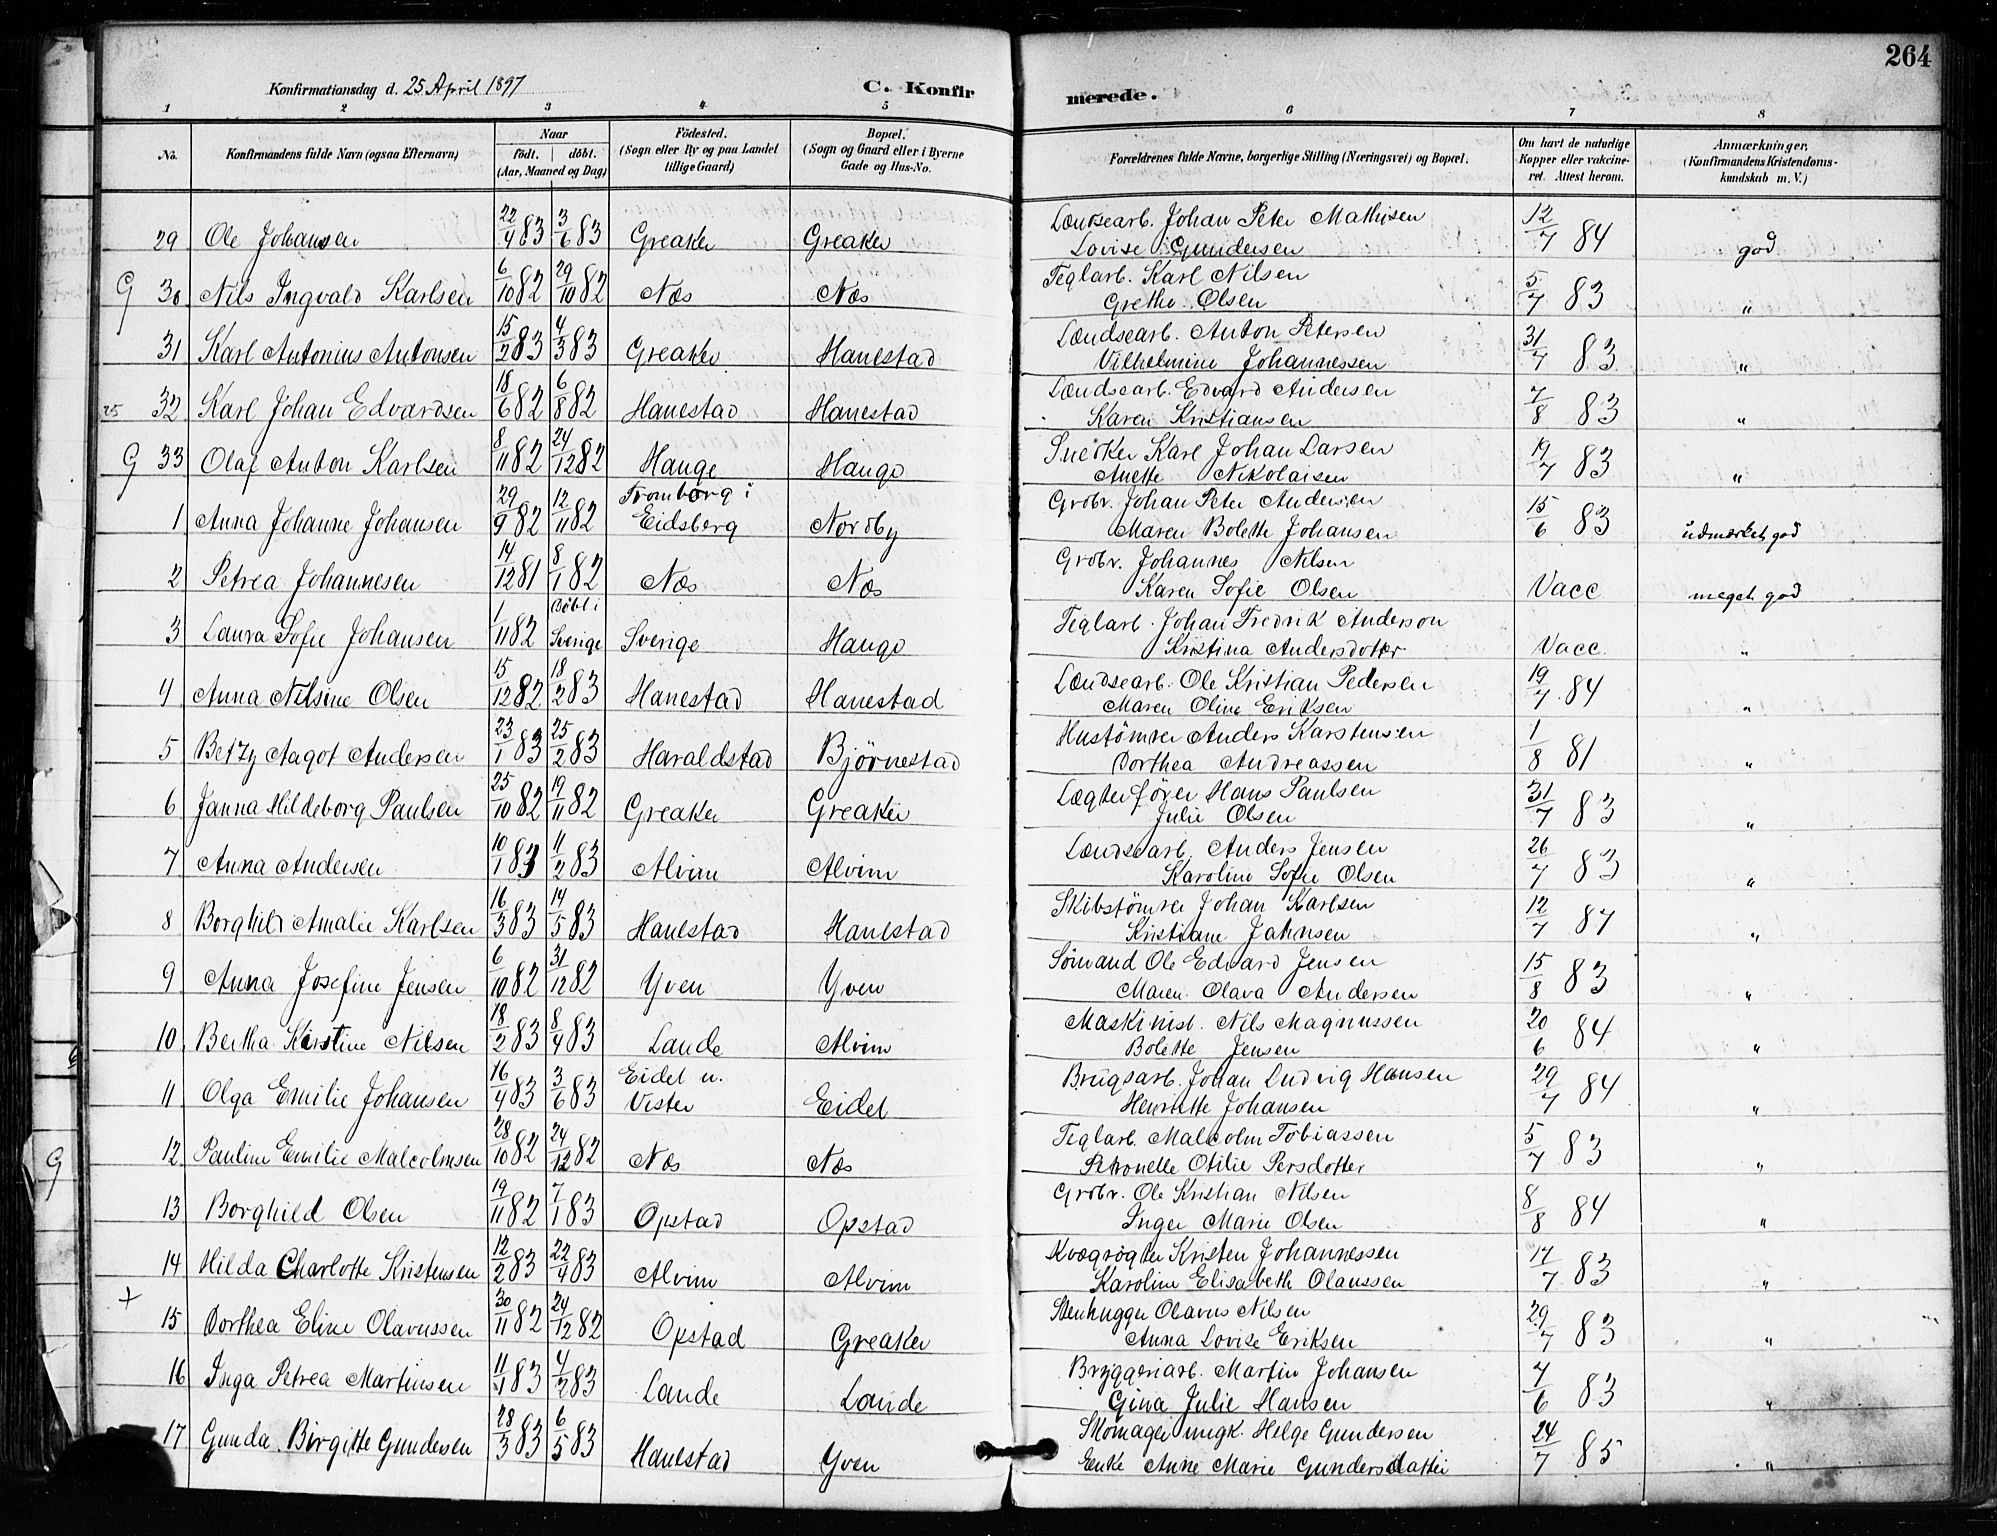 264
Konfirmationsdag d. 25 April 1897
C. Konfirmerede.
1 2 3 4 5 6 7 8
No. Konfirmandens fulde Navn (ogsaa Efternavn) Naar födt. döbt. (Aar, Maaned og Dag) Födested. (Sogn eller By og paa Landet tillige Gaard) Bopæl. (Sogn og Gaard eller i Byerne Gade og Hus-No. Forældrenes fulde Navne, borgerlige Stilling (Næringsvei) og Bopæl. Om havt de naturlige Kopper eller vakcineret. Attest herom. Anmærkninger. (Konfirmandens Kristendomskundskab m. V.)
29 Ole Johansen 22/4 83 3/6 83 Greaker Greaker Lændsearb. Johan Peter Mathisen 12/7 84 god
Lovise Gundersen
G 30 Nils Ingvald Karlsen 6/10 82 29/10 82 Næs Næs Teglarb. Karl Nilsen 5/7 83 "
Grethe Olsen
31 Karl Antonius Antonsen 15/2 83 4/3 83 Greaker Hanestad Lændsearb. Anton Petersen 31/7 83 "
Vilhelmine Johannessen
25 32 Karl Johan Edvardsen 18/6 82 6/8 82 Hanestad Hanestad Lændsearb. Edvard Andersen 7/8 83 "
Karen Kristiansen
G 33 Olaf Anton Karlsen 8/11 82 24/12 82 Hauge Hauge Snedker Karl Johan Larsen 19/7 83 "
Anette Nikolaisen
1 Anna Johanne Johansen 29/9 82 12/11 82 Tromborg i Eidsberg Nordby Grobr. Johan Peter Andersen 15/6 83 udmærket god
Maren Bolette Johansen
2 Petrea Johannesen 14/12 81 8/1 82 Næs Næs Grobr. Johannes Nilsen Vacc meget god
Karen Sofie Olsen
3 Laura Sofie Johansen 1/11 82 Döbt i Sverige Sverige Hauge Teglarb. Johan Fredrik Anderson Vacc. "
Kristina Andersdotter
4 Anna Nilsine Olsen 15/12 82 18/2 83 Hanestad Hanestad Lændsearb. Ole Kristian Pedersen 19/7 84 "
Maren Oline Eriksen
5 Betzy Aagot Andersen 23/1 83 25/2 83 Haraldstad Bjørnestad Hustömrer Anders Karstensen 1/8 81 "
Dorthea Andreassen
6 Janna Hildeborg Paulsen 25/10 82 19/11 82 Greaker Greaker Lægterfører Hans Paulsen 31/7 83 "
Julie Olsen
7 Anna Andersen 10/1 83 11/2 83 Alvim Alvim Lændsearb. Anders Jensen 26/7 83 "
Karoline Sofie Olsen
8 Borghild Amalie Karlsen 16/3 83 14/5 83 Hanestad Hanestad Skibstømrer Johan Karlsen 12/7 87 "
Kristiane Jahnsen
9 Anna Josefine Jensen 6/10 82 31/12 82 Yven Yven Sømand Ole Edvard Jensen 15/8 83 "
Maren Olava Andersen
10 Bertha Kirstine Nilsen 18/2 83 8/4 83 Lande Alvim Maskinist. Nils Magnussen 20/6 84 "
Bolette Jensen
11 Olga Emilie Johansen 16/4 83 3/6 83 Eidet u. Vister Eidet Brugsarb. Johan Ludvig Hansen 29/7 84 "
Henriette Johansen
12 Pauline Emilie Malcolmsen 28/10 82 24/12 82 Næs Næs Teglarb. Malcolm Tobiassen 5/7 83 "
G Petronelle Otilie Persdotter
13 Borghild Olsen 19/11 82 7/1 83 Opstad Opstad Grobr. Ole Kristian Nilsen 8/8 84 "
Inger Marie Olsen
14 Hilda Charlotte Kristensen 12/2 83 22/4 83 Alvim Alvim Kvægrögter Kristen Johannessen 17/7 83 "
Karoline Elisabeth Olaussen
+ 15 Dorthea Eline Olavussen 30/11 82 24/12 82 Opstad Greaker Stenhugger Olavus Nilsen 29/7 83 "
Anna Lovise Eriksen
16 Inga Petrea Martinsen 11/1 83 4/2 83 Lande Lande Bryggeriarb. Martin Johansen 4/6 83 "
Gina Julie Hansen
17 Gunda Birgitte Gundersen 28/3 83 6/5 83 Hanestad Yven Skomager ungk. Helge Gundersen 24/7 85 "
Enke Anne Marie Gundersdatter